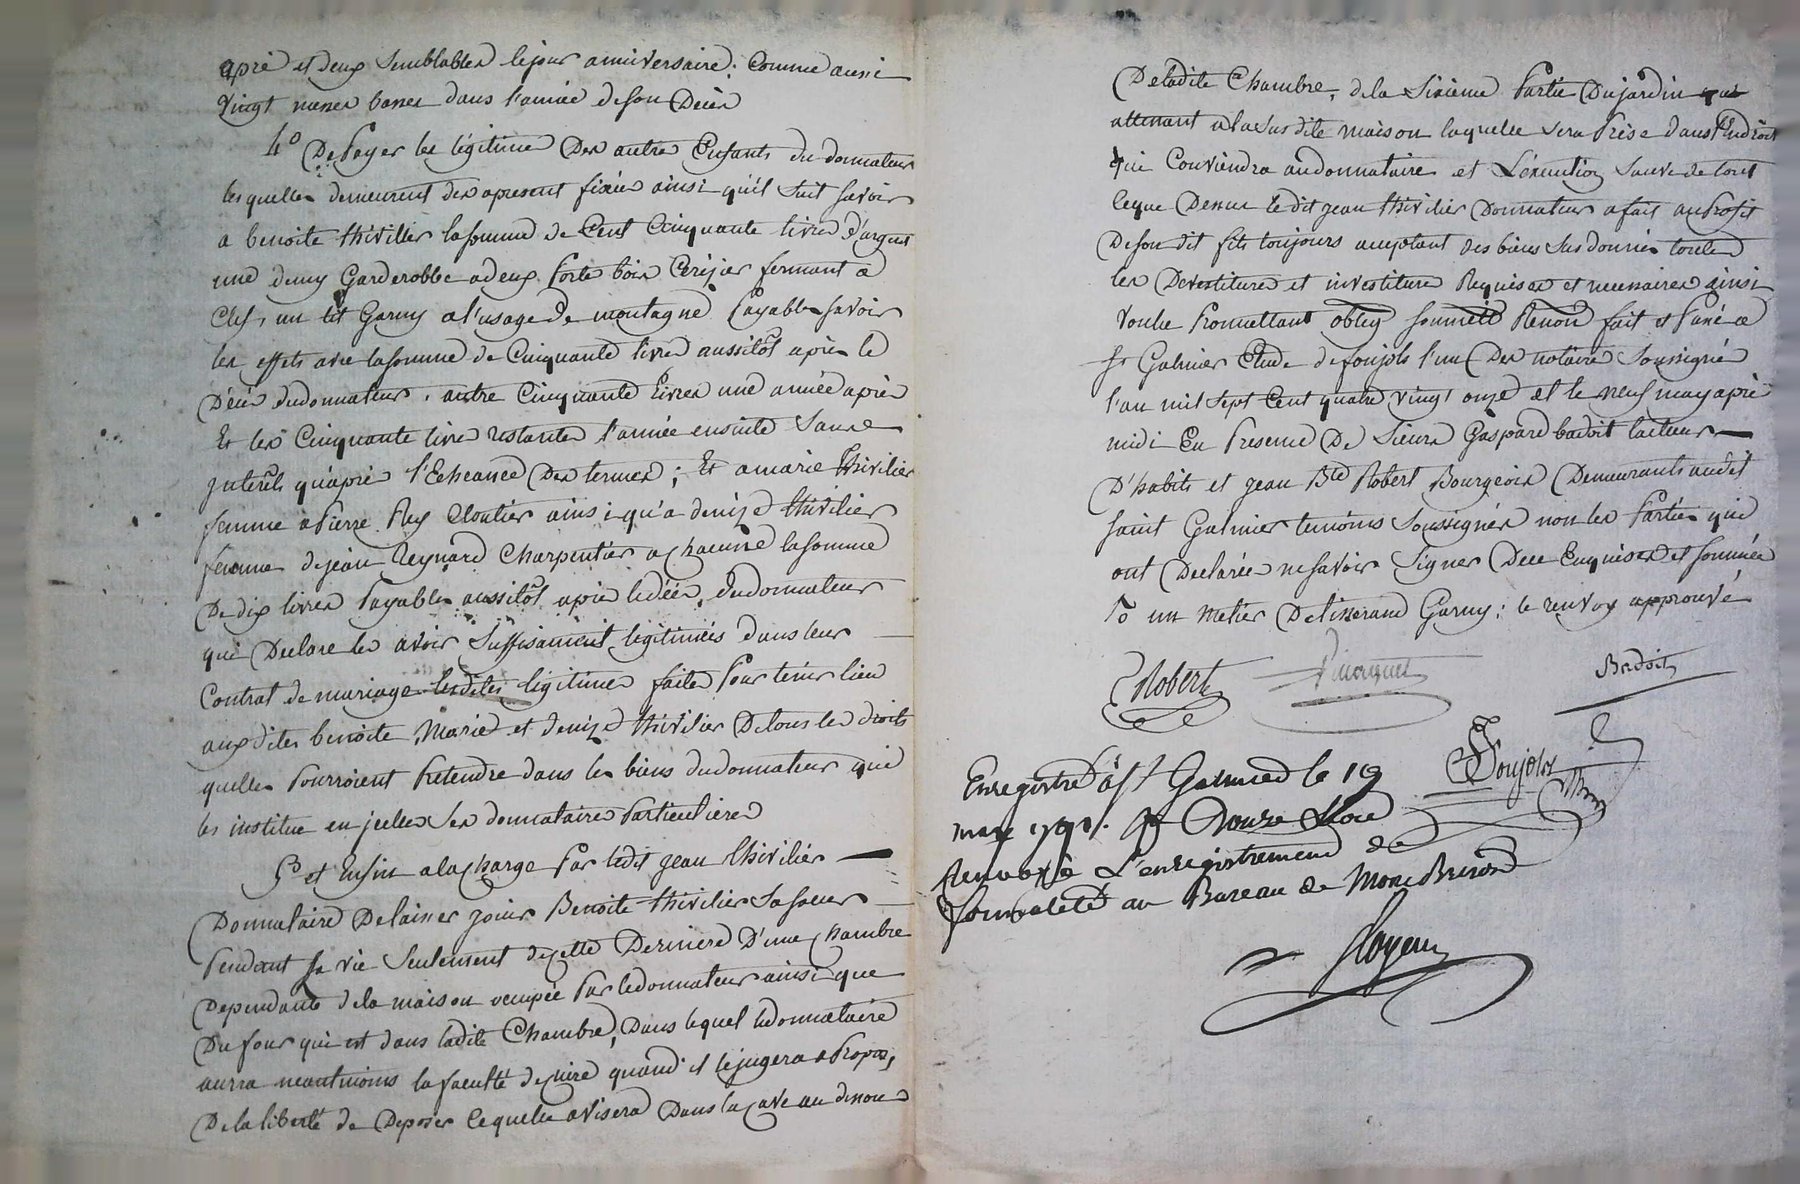 après et deux semblables le jour anniversaire; Comme aussi
Vingt messes basses dans l'année de son Décès
4° De Payer les légitimes Des autres Enfants du donnateur
lesquelles demeurent des apresent fixées ainsi qu'il suit savoir
a benoite thivillier la somme de Cent Cinquante livres d'argent
une demy Garderobbe a deux Porte bois Cerizier fermant a
Clef, un lit Garny a l'usage De montagne Payables savoir
les effets avec la somme de Cinquante livres aussitôt après le
Décès du donnateur, autre Cinquante Livres une année après
Et les Cinquante livre restantes l'année ensuite Sans
jnterêts qu'après l'Echeance Des termes; Et a marie thivilier
femme a Pierre Rey Cloutier ainsi qu'a denize thivilier
femme de jean Reynard Charpentier a chacune la somme
De dix livres Payables aussitôt après le décès du donnateur
qui Declare les avoir Suffisament légitimées dans leur
Contrat de mariage lesdites légitimes faites Pour tenir lieu
auxdites benoite, Marie et denize thivilier De tous les droits
quelles Pourroient Pretendre dans les biens du donnateur qui
les institue en jcelles Ses donnataires Particulieres
5° et Enfin a la charge Par ledit jean thivilier
Donnataire De laisser jouir Benoite thivilier Sa soeur
Pendant Sa vie Seulement de cette Derniere D'une chambre
Dependante de la maison occupée Par le donnateur ainsi que
Du four qui est dans ladite Chambre, Dans lequel le donnataire
aurra neantmoins la faculté de cuire quand il le jugera a Propos,
De la liberté de Deposer ce quelle avisera Dans la cave au dessous
De ladite Chambre, de la Sixieme Partie Du jardin
attenant a la susdite maison laquelle sera Prise dans l'Endroit
qui Conviendra au donnataire et L'exemtion Sauve de tout
ce que Dessus ledit jean thivilier Donnateur a fait au Profit
De son dit fils toujours acceptant des biens sus donnés toutes
les Devestitures et investitures Requises et necessaires ainsi
voulu Promettant obley soumett Renon fait et Passé a
St Galmier Etude de foujols l'un Des notaires Soussignés
l'an mil sept Cent quatre vingt onze et le neuf may après
midi En Presence De Sieurs Gaspard badoit tailleur
D'habits et jean Bte Robert Bourgeois Demeurants audit
saint Galmier temoins Soussignés non les Parties qui
ont Declarées ne savoir Signer De ce Enquises et sommées
un metier De tisserand Garny: le renvoy approuvé
Robert
Badoit
foujols
Enregistré à St Galmier le 19
may 1791. Rt Douze
Renvoyé L'enregistrement de
formaleté au Bureau de Monbrison